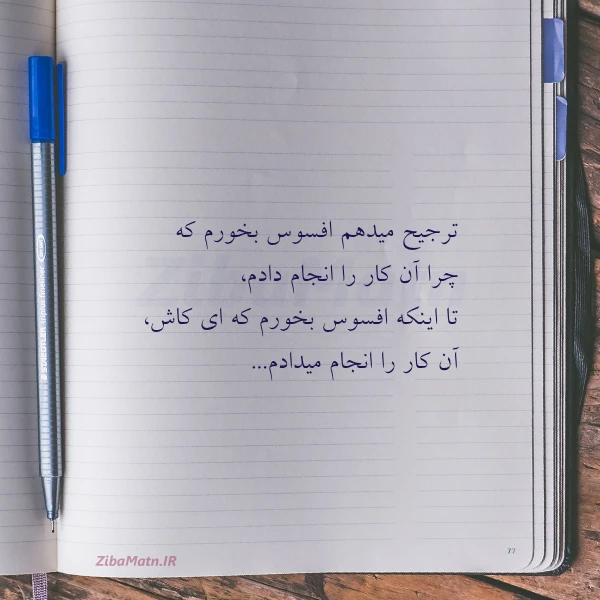 ترجیح میدهم افسوس بخورم که
چرا آن کار را انجام دادم،
تا اینکه افسوس بخورم که ای کاش،
آن کار را انجام میدادم...
ZibaMatn.IR
77